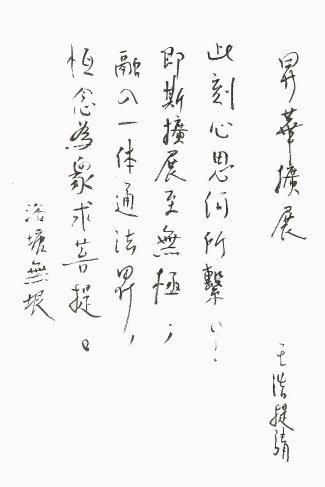 昇華擴展
王浩提請
此刻心思何所繫，
即斯擴展至無極；
融入一体通法界，
恆念為眾求菩提。
洛塘無垠